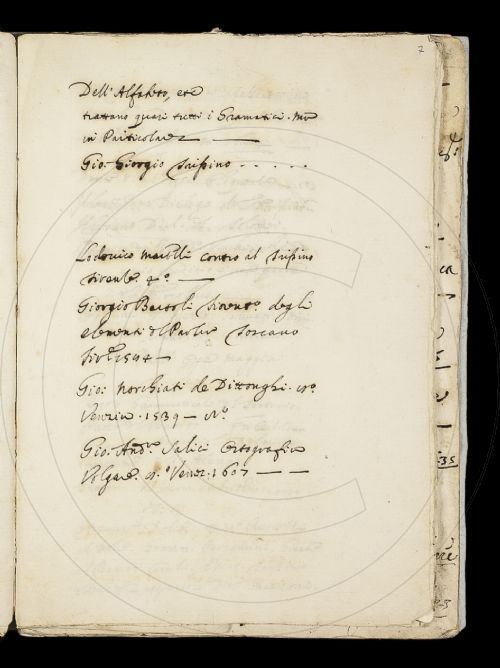 7
Dell'Alfabeto, etc
trattano quasi tutti i Gramatici. Mà
in Particolare —
Gio: Giorgio Trissino - - - - -
Lodovico Martelli contro al Trissino
Firenle. 4.° —
Giorgio Bartoli Fiorent.° degli
elementi del Parlar Toscano
Fir.e 1584 —
Gio: Norchiati de Dittonghi. in
Venezia. 1539 —
Gio. And.a Salici Ortografia
Volgare. Venez. 1607 — —